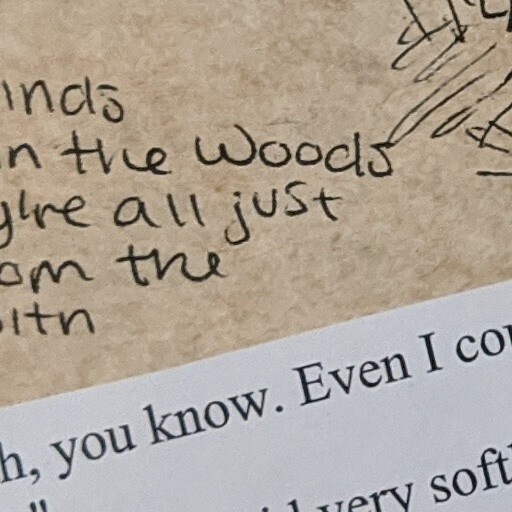 inds
in the Woods
y're all just
om the
itn
h, you know. Even I cou
very softl